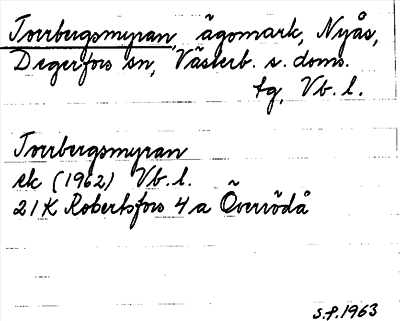 Torrbergsmyran, ägomark, Nyås,
Degerfors sn, Västerb. s. doms.
tg, Vb. l.
Torrbergsmyran
ek (1962) Vb. l.
21K Robertsfors 4a Överrödå
S.f. 1963